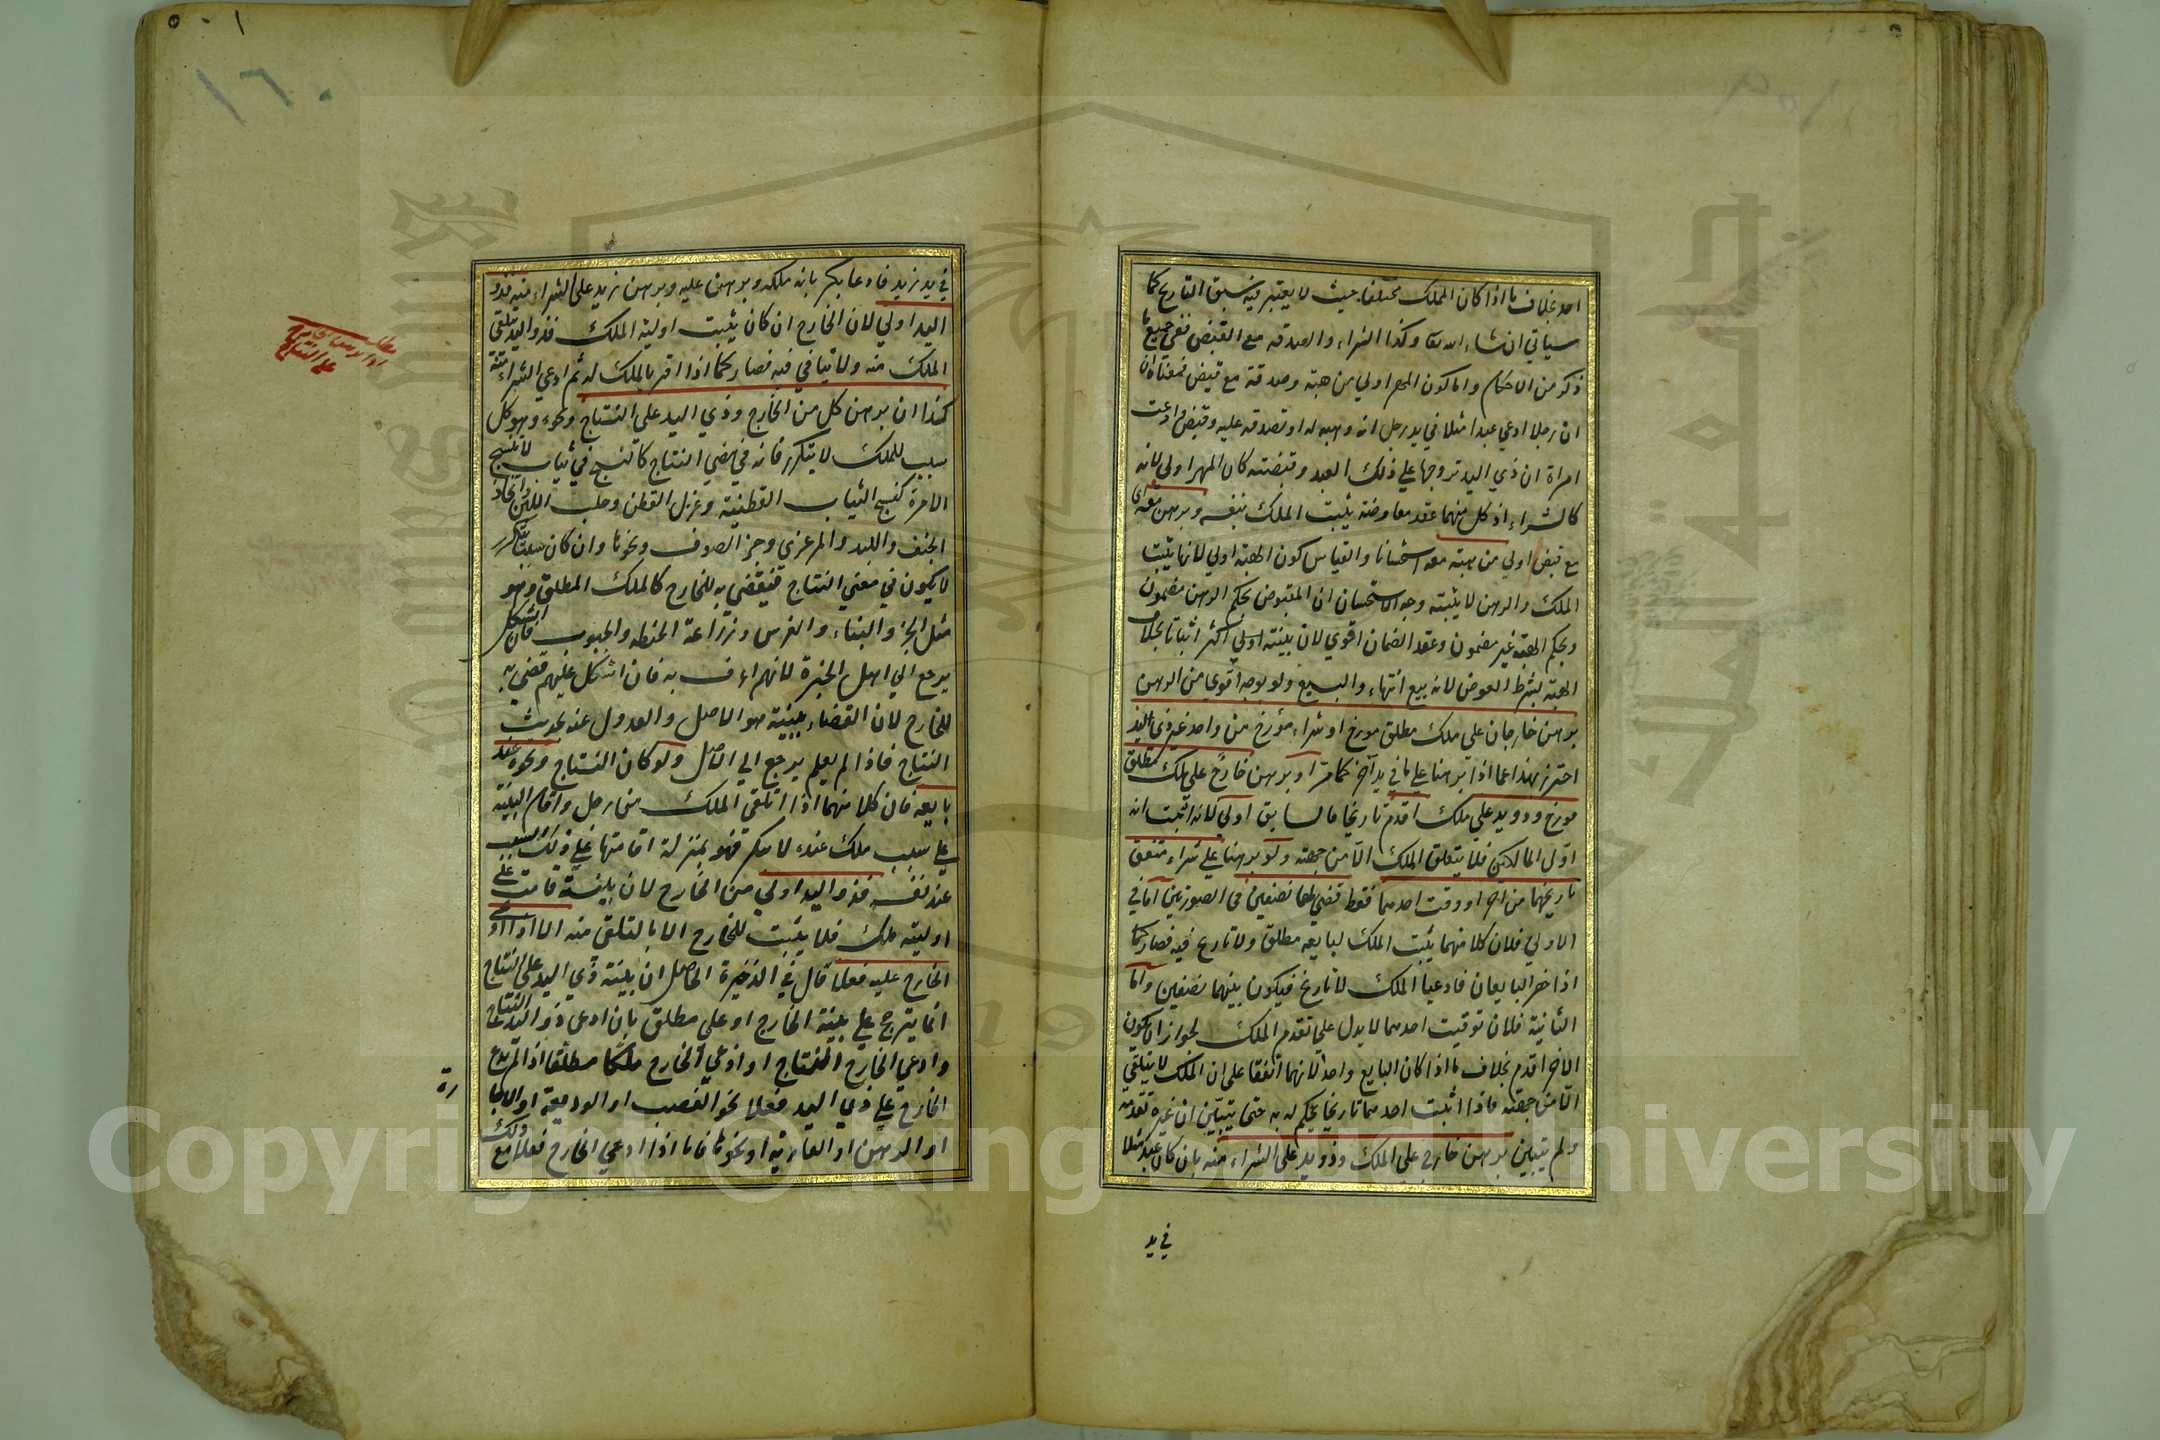 احد بخلاف ما اذا كان المملك مختلفا حيث لا يعتبر فيه سبق التاريخ كما
سياتي ان شاء الله تعالى وكذا الشراء والصدقة مع القبض ففي جميع ما
ذكر من الاحكام واما كون المهر اولى من هبة وصدقة مع قبض فمعناه ان
ان رجلا ادعى عبدا مثلا في يد رجل انه وهبه له او تصدقه عليه وقبض وادعت
امراة ان ذي اليد تزوجها على ذلك العبد وقبضته كان المهر اولى لانه
كالشراء اذ كل منهما عقد معاوضة يثبت الملك بنفسه ورهن معه اى
مع قبض اولى من هبة معه استحسانا والقياس كون الهبة اولى لانها يثبت
الملك والرهن لا يثبته وجه الاستحسان ان المقبوض بحكم الرهن مضمون
وبحكم الهبة غير مضمون وعقد الضمان اقوى لان بينته اولى اكثر اثباتا بخلاف
الهبة بشرط العوض لانه بيع انتهاء والبيع ولو بوجه اقوى من الرهن
برهن خارجان على ملك مطلق مورخ او شراء مؤرخ من واحد غير ذي اليد
احترز بهذا عما اذا برهنا على ما في يد آخر كما مر او برهن خارج على ملك مطلق
مورخ وذو يد على ملك اقدم تاريخا فالسابق اولى لانه اثبت انه
اول المالكين فلا يتعلق الملك الا من جهته ولو برهنا على شراء متفق
تاريخهما من اخر او وقت احدهما فقط قضي لهما نصفين في الصورتين اما في
الاولى فلان كلا منهما يثبت الملك لبايعه مطلق ولا تاريخ فيه فصار كما
اذا حضر البايعان فادعيا الملك لا تاريخ فيكون بينهما نصفين واما
الثانية فلان توقيت احدهما لا يدل على تقدم الملك لجواز ان يكون
الاخر اقدم بخلاف ما اذا كان البايع واحدا لانهما اتفقا على ان الملك لا يتلقى
الا من جهته فاذا اثبت احدهما تاريخا يحكم له به حتى يتبين ان غيره تقدمه
ولم يتبين برهن خارج على الملك وذو يد على الشراء منه بان كان عبد مثلا
في يد
١٦٠
في يد زيد فادعا بكر بانه ملكه وبرهن عليه وبرهن زيد على الشراء منه فذو
اليد اولى لان الخارج ان كان يثبت اولية الملك فذو اليد تلقى
الملك منه ولا تنافي فيه فصار كما اذا اقر بالملك له ثم ادعى الشراء منه
كذا ان برهن كل من الخارج وذي اليد على النتاج ونحوه وهو كل
سبب للملك لا يتكرر فانه في معنى النتاج كالنسج في ثياب لا تنسج
الا مرة كنسج الثياب القطنية وغزل القطن وحلب اللبن واتخاذ
الجبن واللبد والمرعزي وجز الصوف ونحوها وان كان سببا يتكرر
لا يكون في معنى النتاج فيقضي به للخارج كالملك المطلق وهو
مثل الخز والبناء والغرس وزراعة الحنطة والحبوب فان اشكل
يرجع الى اهل الخبرة لانهم اعرف به فان اشكل عليهم قضي به
للخارج لان القضاء ببينة هو الاصل والعدول عنه بحديث
النتاج فاذا لم يعلم يرجع الى الاصل ولو كان النتاج ونحوه عند
بايعه فان كلا منهما اذا تلقى الملك من رجل واقام البينة
على سبب ملك عنده لا يتكرر فهو بمنزلة اقامتها على ذلك السبب
عند نفسه فذو اليد اولى من الخارج لان بينته قامت على
اولية ملك فلا يثبت للخارج الا بالتلقي منه الا اذا ادعى
الخارج عليه فعلا قال في الذخيرة الحاصل ان بينة ذي اليد على النتاج
انما يترجح على بينة الخارج او على مطلق بان ادعى ذو اليد النتاج
وادعى الخارج النتاج او ادعى الخارج ملكا مطلقا اذا لم يدع
الخارج على ذي اليد فعلا نحو الغصب او الوديعة او الاجارة
او الرهن او العارية او نحوها فاما اذا ادعى الخارج فعلا مع ذلك
Copyright © King Saud University